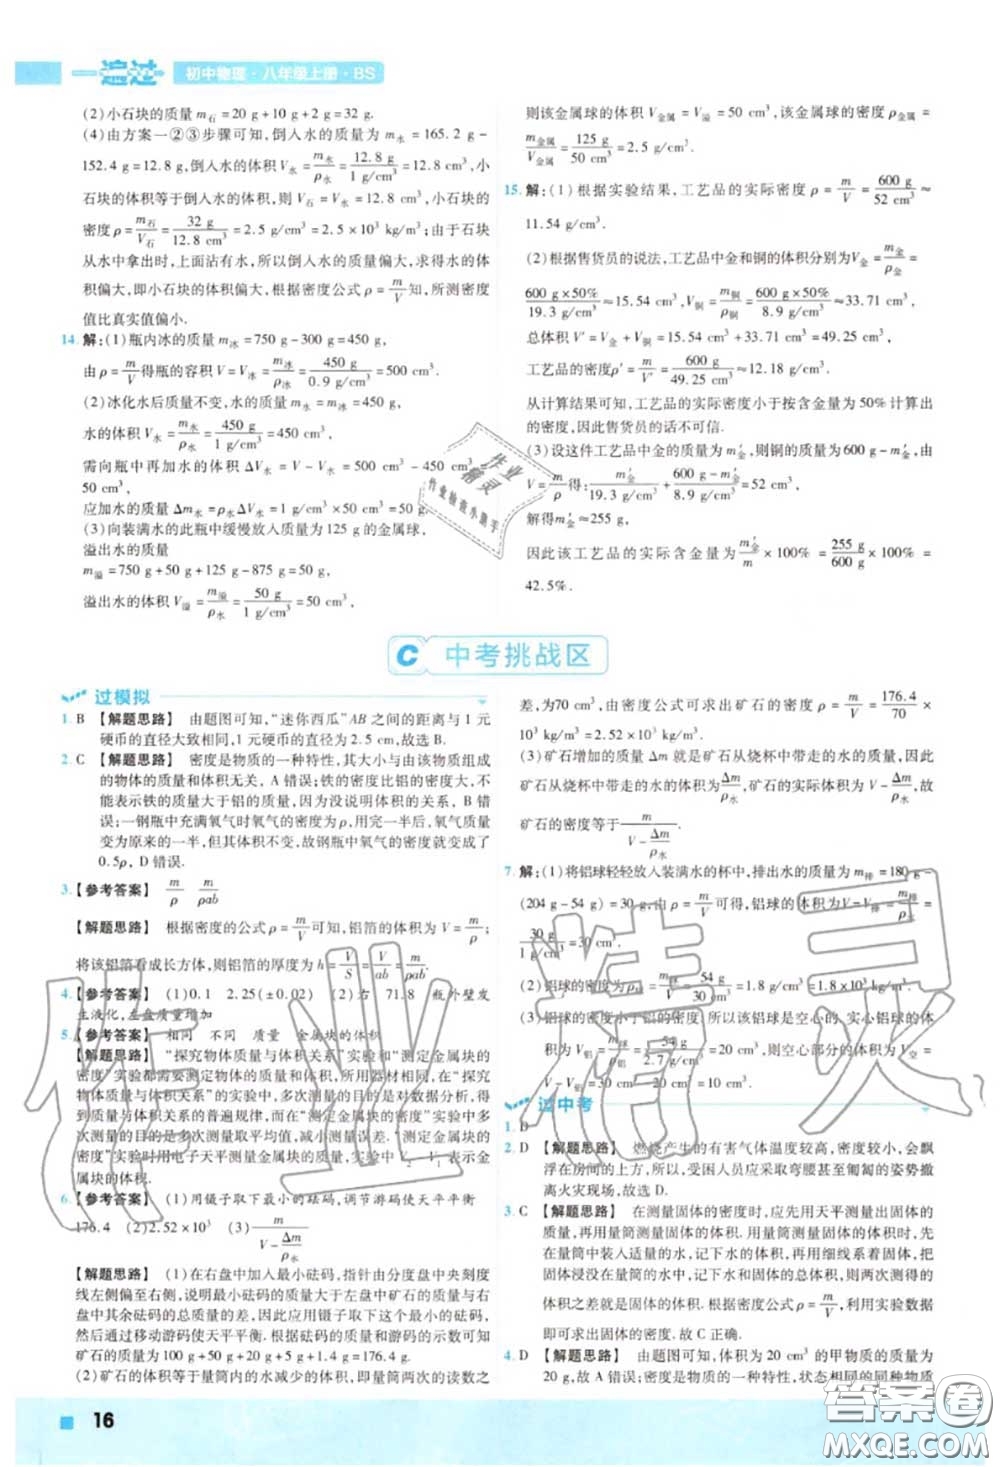 一遍过 初中物理·八年级上册·BS
(2)小石块的质量 m石=20 g+10 g+2 g=32 g.
(4)由方案一②③步骤可知,倒入水的质量为 m水=165.2 g-
152.4 g=12.8 g,倒入水的体积 V水=m水/ρ水=12.8 g/1 g/cm³=12.8 cm³,小
石块的体积等于倒入水的体积,则 V石=V水=12.8 cm³,小石块的
密度ρ=m石/V石=32 g/12.8 cm³=2.5 g/cm³=2.5×10³ kg/m³;由于石块
从水中拿出时,上面沾有水,所以倒入水的质量偏大,求得水的体
积偏大,即小石块的体积偏大,根据密度公式ρ=m/V知,所测密度
值比真实值偏小.
14.解:(1)瓶内冰的质量 m冰=750 g-300 g=450 g,
由ρ=m/V得瓶的容积 V=V冰=m冰/ρ冰=450 g/0.9 g/cm³=500 cm³.
(2)冰化水后质量不变,水的质量 m水=m冰=450 g,
水的体积 V水=m水/ρ水=450 g/1 g/cm³=450 cm³,
需向瓶中再加水的体积 ΔV水=V-V水=500 cm³-450 cm³=
50 cm³,
应加水的质量 Δm水=ρ水ΔV水=1 g/cm³×50 cm³=50 g.
(3)向装满水的此瓶中缓慢放入质量为 125 g 的金属球,
溢出水的质量
m溢=750 g+50 g+125 g-875 g=50 g,
溢出水的体积 V溢=m溢/ρ水=50 g/1 g/cm³=50 cm³,
则该金属球的体积 V金属=V溢=50 cm³,该金属球的密度ρ金属=
m金属/V金属=125 g/50 cm³=2.5 g/cm³.
15.解:(1)根据实验结果,工艺品的实际密度ρ=m/V=600 g/52 cm³≈
11.54 g/cm³.
(2)根据售货员的说法,工艺品中金和铜的体积分别为V金=m金/ρ金=
600 g×50%/19.3 g/cm³≈15.54 cm³,V铜=m铜/ρ铜=600 g×50%/8.9 g/cm³≈33.71 cm³,
总体积 V′=V金+V铜=15.54 cm³+33.71 cm³=49.25 cm³,
工艺品的密度ρ′=m/V′=600 g/49.25 cm³≈12.18 g/cm³.
从计算结果可知,工艺品的实际密度小于按含金量为 50% 计算出
的密度,因此售货员的话不可信.
(3)设这件工艺品中金的质量为 m′金,则铜的质量为 600 g-m′金,由
V=m/ρ得:m′金/19.3 g/cm³+600 g-m′金/8.9 g/cm³=52 cm³,
解得m′金≈255 g,
因此该工艺品的实际含金量为m′金/m×100%=255 g/600 g×100%=
42.5%.
C 中考挑战区
过模拟
1. B 【解题思路】 由题图可知,“迷你西瓜”AB 之间的距离与 1 元
硬币的直径大致相同,1 元硬币的直径为 2.5 cm,故选 B.
2. C 【解题思路】 密度是物质的一种特性,其大小与由该物质组成
的物体的质量和体积无关, A 错误;铁的密度比铝的密度大,不
能表示铁的质量大于铝的质量,因为没说明体积的关系, B 错
误;一钢瓶中充满氧气时氧气的密度为ρ,用完一半后,氧气质量
变为原来的一半,但其体积不变,故钢瓶中氧气的密度就变成了
0.5ρ, D 错误.
3.【参考答案】 m/ρ m/ρab
【解题思路】 根据密度的公式ρ=m/V可知,铝箔的体积 V=m/ρ;
将该铝箔看成长方体,则铝箔的厚度为 h=V/S=V/ab=m/ρab.
4.【参考答案】 (1)0.1 2.25(±0.02) (2)右 71.8 瓶外壁发
生液化,左盘质量增加
5.【参考答案】 相同 不同 质量 金属块的体积
【解题思路】 “探究物体质量与体积关系”实验和“测定金属块的
密度”实验都需要测定物体的质量和体积,所用器材相同,在“探究
物体质量与体积关系”实验中,多次测量的目的是对数据分析,得到
质量与体积关系的普遍规律,而在“测定金属块的密度”实验中多
次测量的目的是多次测量取平均值,减小测量误差.“测定金属块的
密度”实验时用电子天平测量金属块的质量,图中 V2-V1 表示金
属块的体积.
6.【参考答案】 (1)用镊子取下最小的砝码,调节游码使天平平衡
176.4 (2)2.52×10³ (3)m/V-Δm/ρ水
【解题思路】 (1)在右盘中加入最小砝码,指针由分度盘中央刻度
线左侧偏至右侧,说明最小砝码的质量大于左盘中矿石的质量与右
盘中其余砝码的总质量的差,因此应用镊子取下这个最小的砝码,
然后通过移动游码使天平平衡.根据砝码的质量和游码的示数可知
矿石的质量为 100 g+50 g+20 g+5 g+1.4 g=176.4 g.
(2)矿石的体积等于量筒内的水减少的体积,即量筒两次的读数之
差,为70 cm³,由密度公式可求出矿石的密度ρ=m/V=176.4/70×
10³ kg/m³=2.52×10³ kg/m³.
(3)矿石增加的质量 Δm 就是矿石从烧杯中带走的水的质量,因此
矿石从烧杯中带走的水的体积为Δm/ρ水,矿石的实际体积为 V-Δm/ρ水,故
矿石的密度等于m/V-Δm/ρ水.
7.解:(1)将铝球轻轻放入装满水的杯中,排出水的质量为 m排=180 g-
(204 g-54 g)=30 g,由ρ=m/V可得,铝球的体积 V=V排=m排/ρ水=
30 g/1 g/cm³=30 cm³.
(2)铝球的密度为ρ=m/V=54 g/30 cm³=1.8 g/cm³.
(3)铝球的密度小于铝的密度,所以该铝球是空心的.实心铝球的体
积为 V铝=m/ρ铝=54 g/2.7 g/cm³=20 cm³,则空心部分的体积为 V空=
V-V铝=30 cm³-20 cm³=10 cm³.
过中考
1. D
2. D 【解题思路】 燃烧产生的有害气体温度较高,密度较小,会飘
浮在房间的上方,所以,受困人员应采取弯腰甚至匍匐的姿势撤
离火灾现场,故选 D.
3. C 【解题思路】 在测量固体的密度时,应先用天平测量出固体的
质量,再用量筒测量固体的体积.用量筒测量固体的体积时,先
在量筒中装入适量的水,记下水的体积,再用细线系着固体,把
固体浸没在量筒的水中,记下水和固体的总体积,两次测得的
体积之差就是固体的体积.根据密度公式ρ=m/V,利用实验数据
即可求出固体的密度.故 C 正确.
4. D 【解题思路】 由题图可知,体积为 20 cm³ 的甲物质的质量为
20 g,故 A 错误;
16
作业精灵
作业检查小助手
答案圈
MXQE.COM